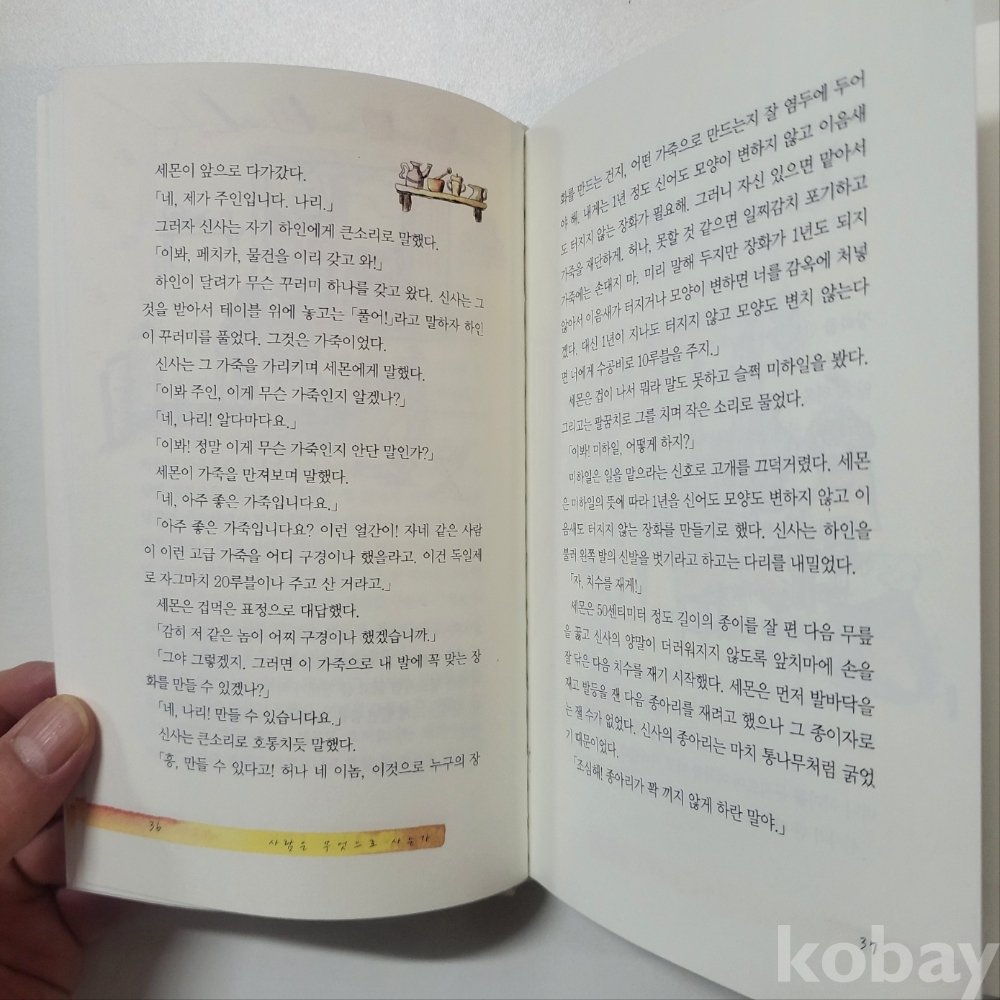 세몬이 앞으로 다가갔다.
「네, 제가 주인입니다. 나리.」
그러자 신사는 자기 하인에게 큰소리로 말했다.
「이봐, 페치카, 물건을 이리 갖고 와!」
하인이 달려가 무슨 꾸러미 하나를 갖고 왔다. 신사는 그
것을 받아서 테이블 위에 놓고는 「풀어!」라고 말하자 하인
이 꾸러미를 풀었다. 그것은 가죽이었다.
신사는 그 가죽을 가리키며 세몬에게 말했다.
「이봐 주인, 이게 무슨 가죽인지 알겠나?」
「네, 나리! 알다마다요.」
「이봐! 정말 이게 무슨 가죽인지 안단 말인가?」
세몬이 가죽을 만져보며 말했다.
「네, 아주 좋은 가죽입니다요.」
「아주 좋은 가죽입니다요? 이런 얼간이! 자네 같은 사람
이 이런 고급 가죽을 어디 구경이나 했을라고. 이건 독일제
로 자그마치 20루블이나 주고 산 거라고.」
세몬은 겁먹은 표정으로 대답했다.
「감히 저 같은 놈이 어찌 구경이나 했겠습니까.」
「그야 그렇겠지. 그러면 이 가죽으로 내 발에 꼭 맞는 장
화를 만들 수 있겠나?」
「네, 나리! 만들 수 있습니다요.」
신사는 큰소리로 호통치듯 말했다.
「흥, 만들 수 있다고! 허나 네 이놈, 이것으로 누구의 장
36
사람은 무엇으로 사는가
화를 만드는 건지, 어떤 가죽으로 만드는지 잘 염두에 두어
야 해. 내게는 1년 정도 신어도 모양이 변하지 않고 이음새
도 터지지 않는 장화가 필요해. 그러니 자신 있으면 맡아서
가죽을 재단하게. 허나, 못할 것 같으면 일찌감치 포기하고
가죽에는 손대지 마. 미리 말해 두지만 장화가 1년도 되지
않아서 이음새가 터지거나 모양이 변하면 너를 감옥에 처넣
겠다. 대신 1년이 지나도 터지지 않고 모양도 변치 않는다
면 너에게 수공비로 10루블을 주지.」
세몬은 겁이 나서 뭐라 말도 못하고 슬쩍 미하일을 봤다.
그리고는 팔꿈치로 그를 치며 작은 소리로 물었다.
「이봐! 미하일, 어떻게 하지?」
미하일은 일을 맡으라는 신호로 고개를 끄덕거렸다. 세몬
은 미하일의 뜻에 따라 1년을 신어도 모양도 변하지 않고 이
음새도 터지지 않는 장화를 만들기로 했다. 신사는 하인을
불러 왼쪽 발의 신발을 벗기라고 하고는 다리를 내밀었다.
「자, 치수를 재게!」
세몬은 50센티미터 정도 길이의 종이를 잘 편 다음 무릎
을 꿇고 신사의 양말이 더러워지지 않도록 앞치마에 손을
잘 닦은 다음 치수를 재기 시작했다. 세몬은 먼저 발바닥을
재고 발등을 잰 다음 종아리를 재려고 했으나 그 종이자로
는 잴 수가 없었다. 신사의 종아리는 마치 통나무처럼 굵었
기 때문이었다.
「조심해! 종아리가 꽉 끼지 않게 하란 말야.」
37
kobay